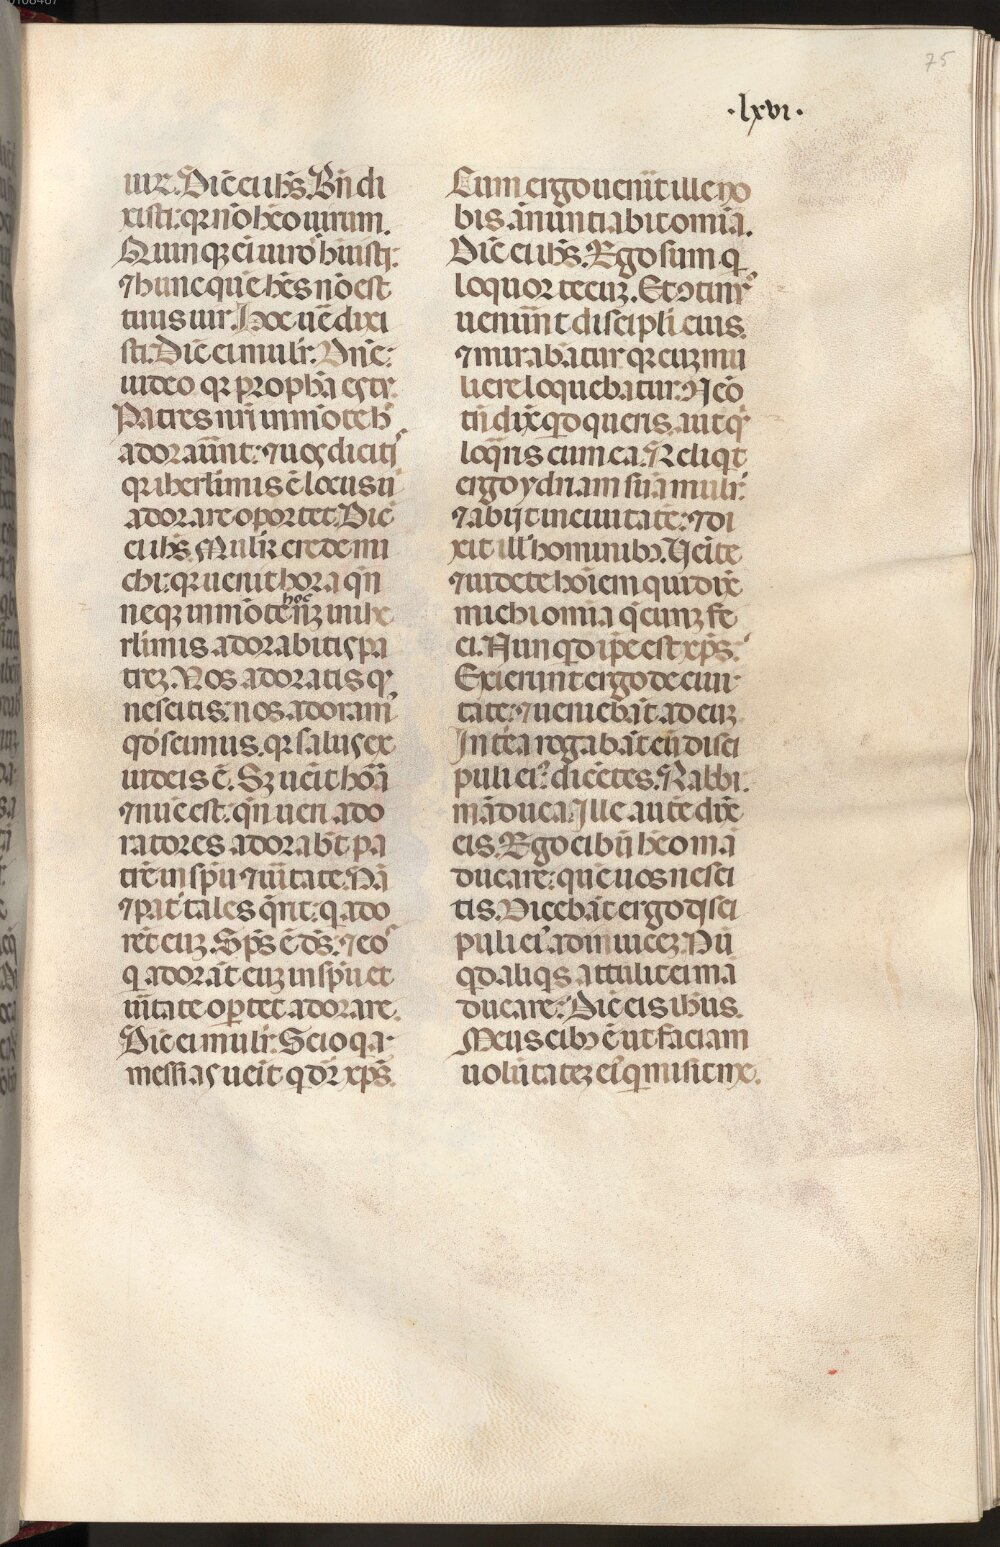 75
·lxvi·
uir. Dic̄ ei ihs̄. Bn̄ di
xisti: qr nō heo uirum.
Quinqꝫ ei uiro hūisti:
⁊ hunc quē hēs nō est
tuus uir. Hoc uē dixi
sti. Dic̄ ei mulir. Dn̄e:
uideo qr propha es tr̄.
Patres nr̄i in mōte h'
adorauūt: ⁊ uos dicit᷒
qr iherl̄imis ē locus u'
adorare oportet. Dic̄
ei ihs̄. Mulir crede mi
chi: qr ueniet hora qn̄
neqꝫ in mōte hoc n̄qꝫ in ihe
rl̄imis adorabitis pa
treꝫ. Vos adoratis qꝫ
nescitis: nos adoram᷒
qd̄ scimus. qr salus ex
iudeis ē. Sꝫ ueīt hōa
⁊ nūc est: qn̄ ueri ado
ratores adorabt̄ pa
trē in sp̄u ⁊ uītate. Nā
⁊ pat' tales qr̄it: q ado
rēt euꝫ. Sps̄ ē ds̄: ⁊ eos
q adorāt euꝫ in sp̄u et
uītate oꝑtet adorare.
Dic̄ ei mulir. Scio qa
messias ueīt q dr̄ xp̄s.
Cum ergo uen̄it ille no
bis ānuntiabit om̄ia.
Dic̄ ei ihs̄. Ego sum q
loquor tecuꝫ. Et ↄtinꝰ
uenūnt discipli eius.
⁊ mirabātur qr cuꝫ mu
liere loquebatur. Neō
tn̄ dix̄ qd queris, aut q
loqr̄is cum ea. Reliqt
ergo ydriam suā mulir
⁊ abijt in ciuitatē: ⁊ di
xit ill' hominibꝫ. Ueīte
⁊ uidete hōiem qui dix̄
michi om̄ia qcumqꝫ fe
ci. Nunqd ip̄e est xp̄s.
Exierunt ergo de ciui
tate: ⁊ ueniebāt ad euꝫ.
Intēa rogabāt eū disci
puli eiꝰ dicētes. Rabbi.
māduca. Ille autē dix̄
eis. Ego cibū heo mā
ducare: quē uos nesci
tis. Dicebāt ergo disci
puli eiꝰ adinuiceꝫ. Nū
qd aliqs attulit ei mā
ducare: Dic̄ eis ihūs.
Meus cibꝫ ē ut faciam
uolūtateꝫ eiꝰ q misit me.